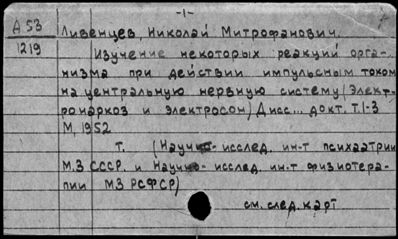 -1-
А 53
1219
Ливенцев, Николай Митрофанович.
Изучение некоторых реакций орга-
низма при действии импульсным током
на центральную нервную систему (Элект-
ронаркоз и электросон) Дисс... докт. Т.1-3
М, 1952
т. (Научно-исслед. ин-т психиатрии
МЗ СССР. и Научно-исслед. ин-т физиотера-
пии МЗ РСФСР)
см. след. карт